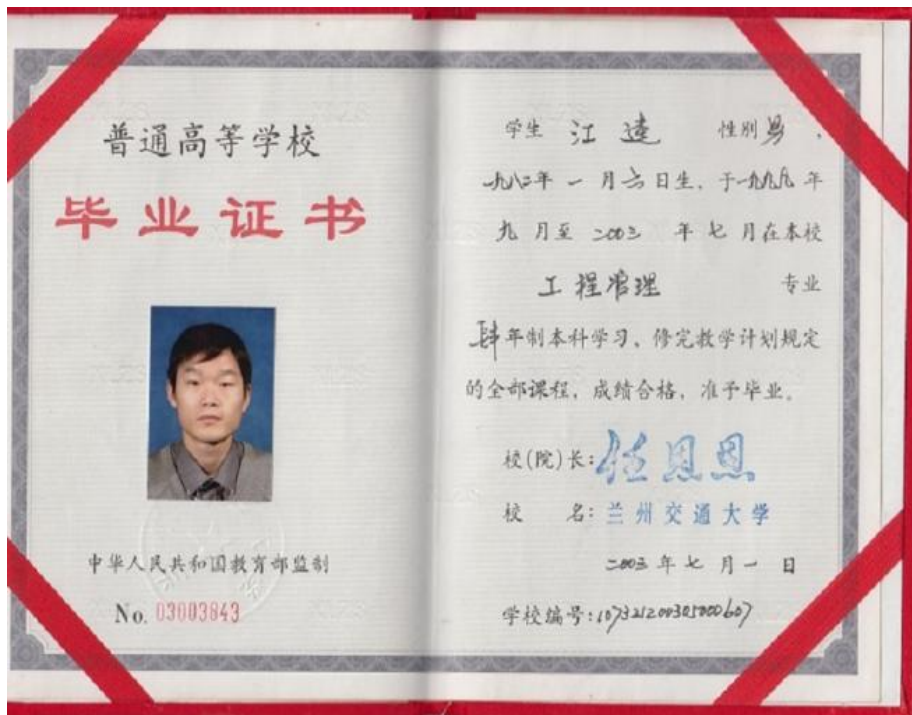 普通高等学校
毕业证书
中华人民共和国教育部监制
No. 03003843
学生 江 达 性别 男 ,
一九八二年 一 月 六 日生, 于一九九九 年
九 月至 二00三 年 七 月在本校
工程管理 专业
肆年制本科学习, 修完教学计划规定
的全部课程, 成绩合格, 准予毕业。
校(院)长: 任恩恩
校 名: 兰州交通大学
二00三 年 七 月 一 日
学校编号: